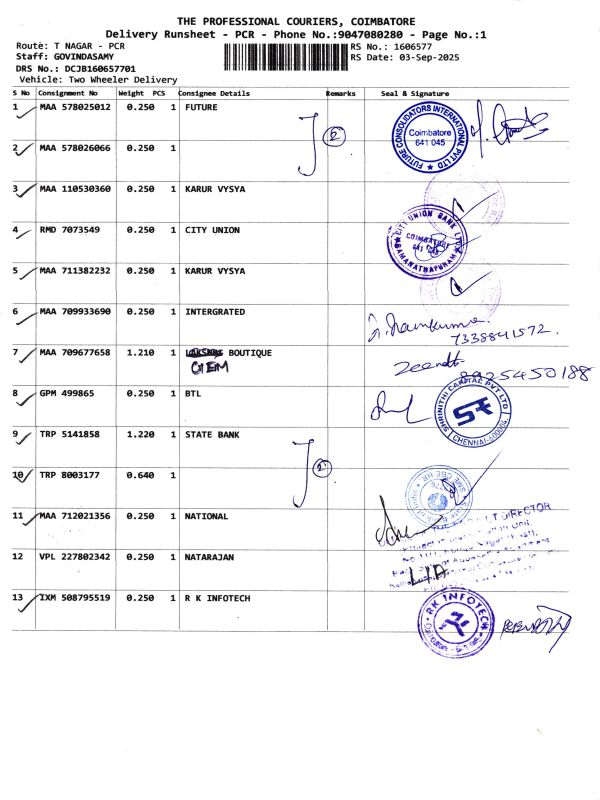 THE PROFESSIONAL COURIERS, COIMBATORE
Delivery Runsheet - PCR - Phone No.:9047080280 - Page No.:1
Route: T NAGAR - PCR RS No.: 1606577
Staff: GOVINDASAMY RS Date: 03-Sep-2025
DRS No.: DCJB160657701
Vehicle: Two Wheeler Delivery
S No Consignment No Weight PCS Consignee Details Remarks Seal & Signature
1 MAA 578025012 0.250 1 FUTURE
FUTURE CONSOLIDATORS INTERNATIONAL PVT LTD
Coimbatore
641 045
2
2 MAA 578026066 0.250 1
3 MAA 110530360 0.250 1 KARUR VYSYA
4 RMD 7073549 0.250 1 CITY UNION
CITY UNION BANK LTD
COIMBATORE
RAMANATHAPURAM
5 MAA 711382232 0.250 1 KARUR VYSYA
6 MAA 709933690 0.250 1 INTERGRATED
7338841572.
7 MAA 709677658 1.210 1 BOUTIQUE
8925450188
8 GPM 499865 0.250 1 BTL
SHRINITHI CAPITAL PVT LTD
CHENNAI-600004
9 TRP 5141858 1.220 1 STATE BANK
2
10 TRP 8003177 0.640 1
SME CBE BR
11 MAA 712021356 0.250 1 NATIONAL
DIRECTOR
12 VPL 227802342 0.250 1 NATARAJAN
13 IXM 508795519 0.250 1 R K INFOTECH
RK INFOTECH